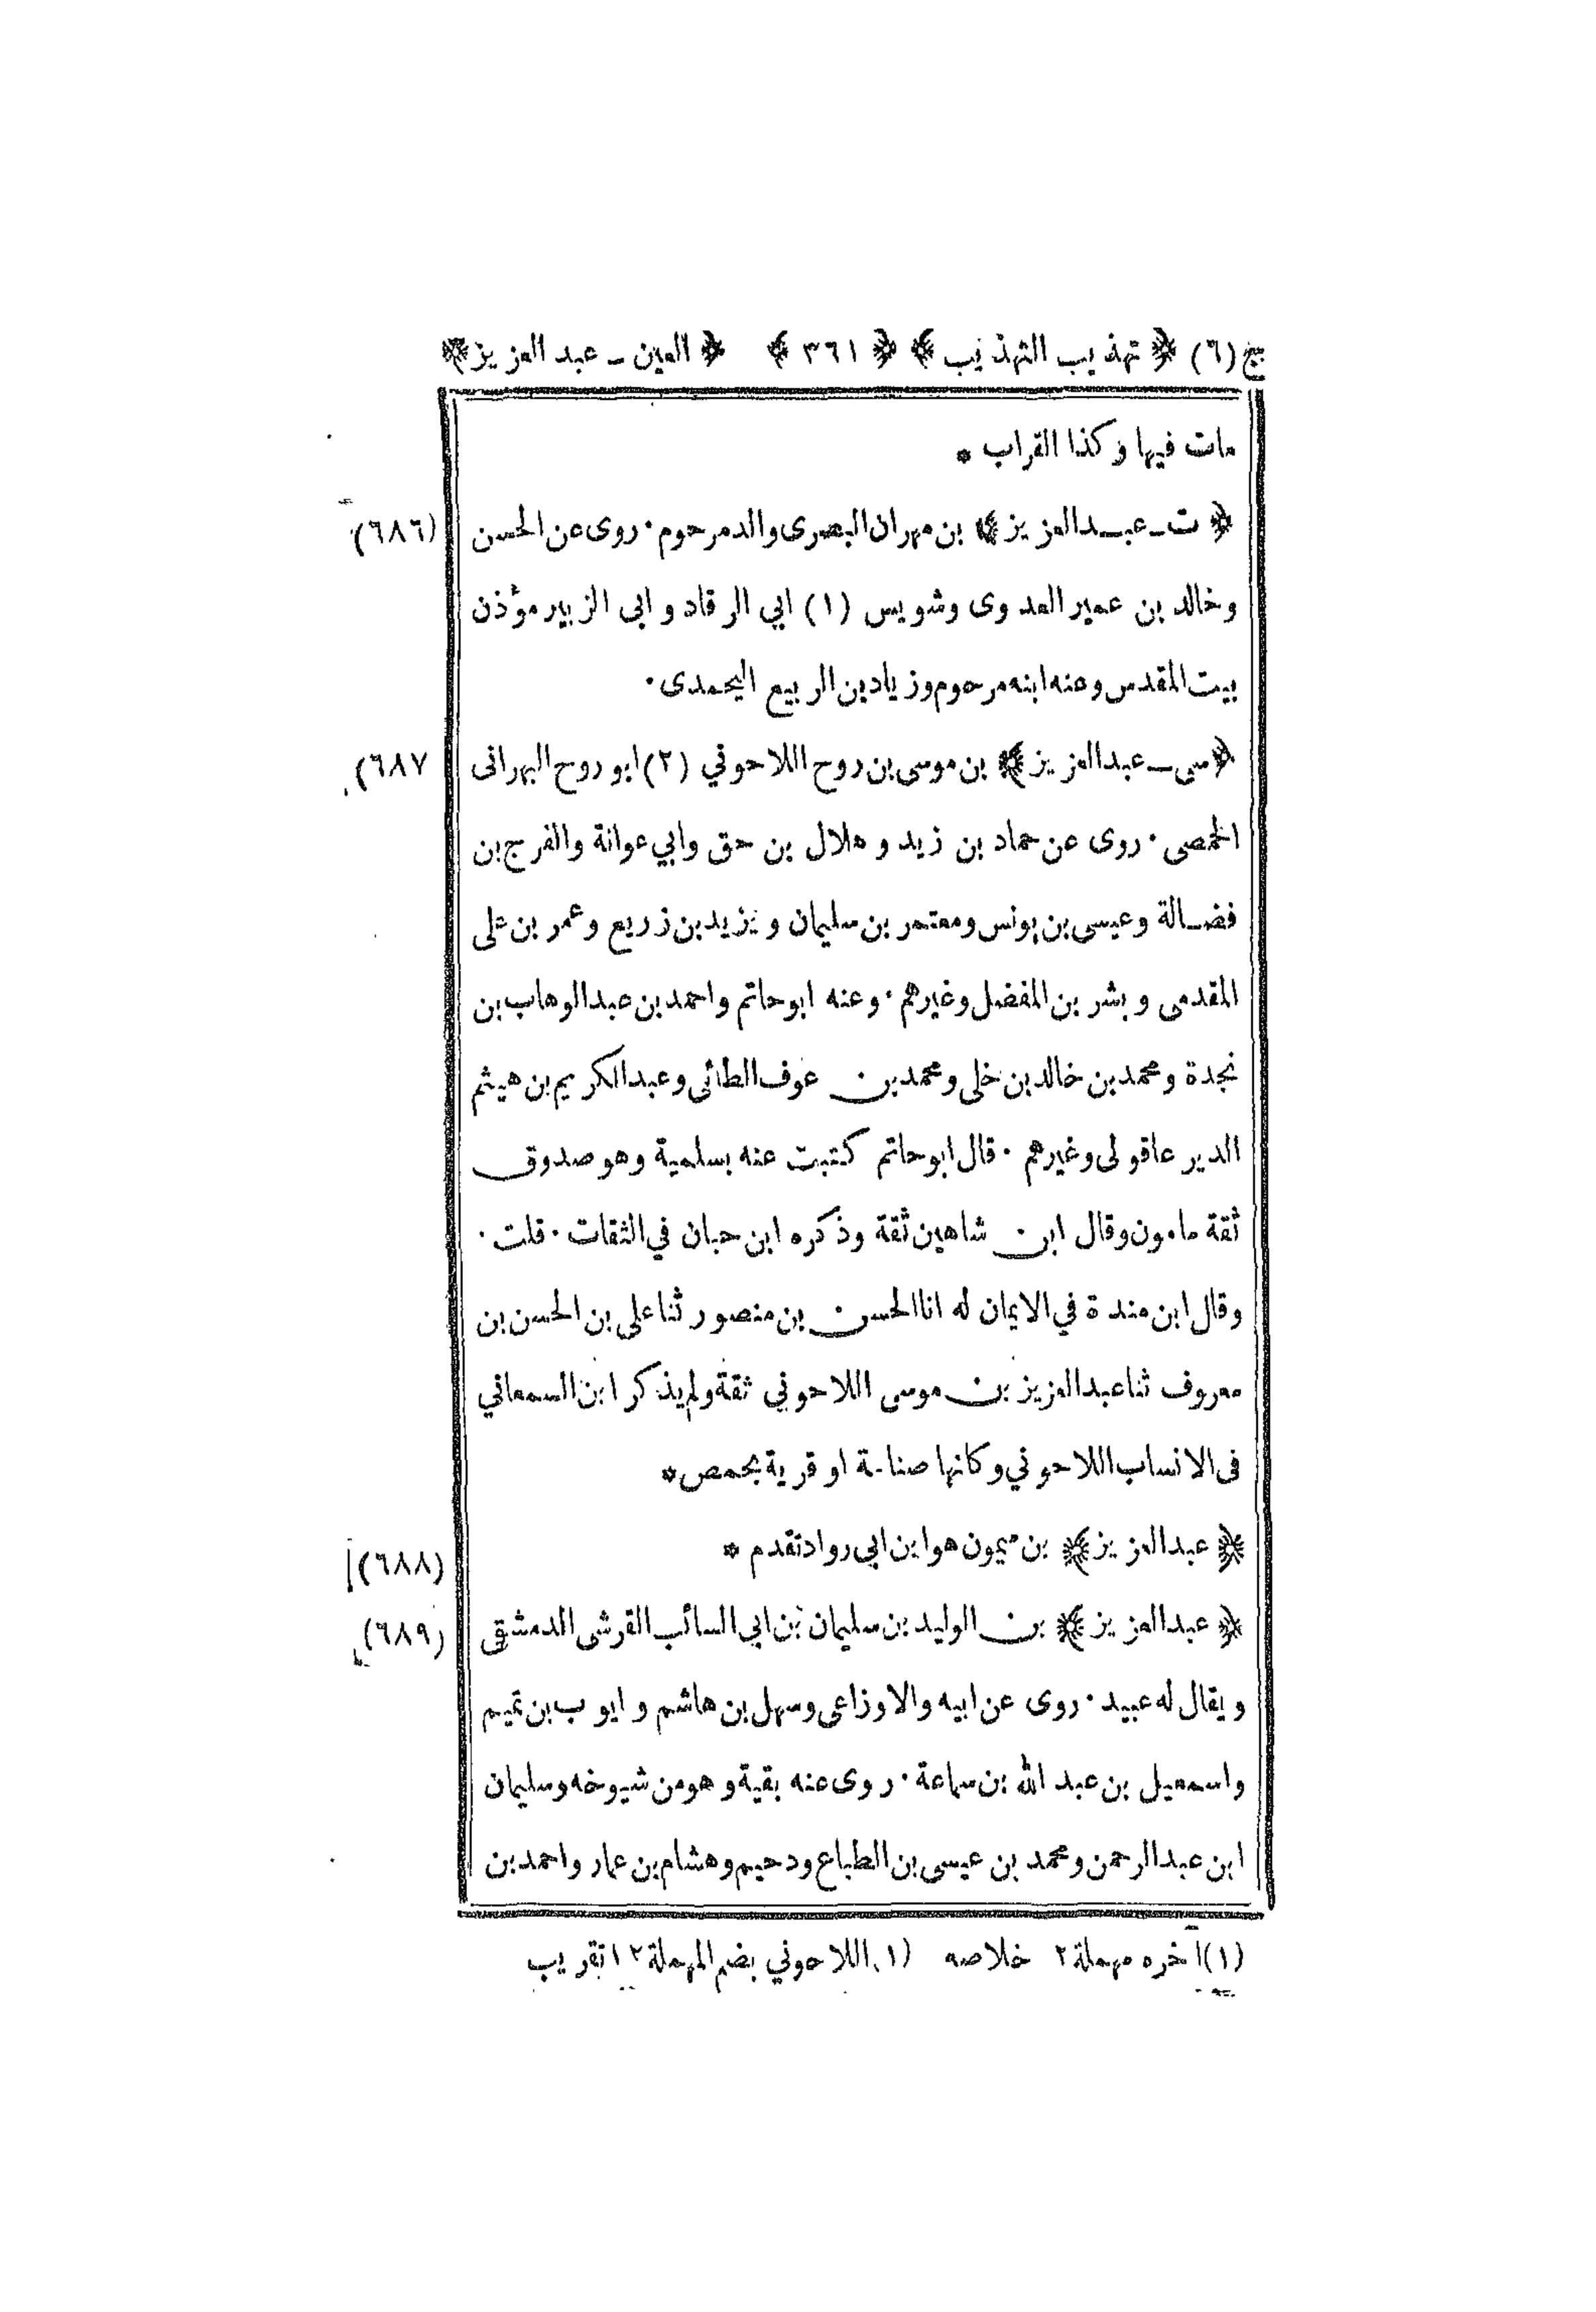 ج (٦) ﴿ تهذيب التهذيب ﴾ ﴿ ٣٦١ ﴾ ﴿ العين ـ عبد العزيز ﴾
مات فيها وكذا القراب *
﴿ ت ـ عبد العزيز ﴾ بن مهران البصرى والد مرحوم . روى عن الحسن (٦٨٦)
وخالد بن عمير العدوى وشويس (١) ابي الرقاد وابى الزبير مؤذن
بيت المقدس وعنه ابنه مرحوم وزياد بن الربيع اليحمدى .
﴿ سى ـ عبد العزيز ﴾ بن موسى بن روح اللاحوني (٢) ابو روح البهرانى (٦٨٧
الحمصى . روى عن حماد بن زيد و هلال بن حق وابي عوانة والفرج بن
فضالة وعيسى بن يونس ومعتمر بن سليمان ويزيد بن زريع وعمر بن على
المقدمى وبشر بن المفضل وغيرهم . وعنه ابو حاتم واحمد بن عبد الوهاب بن
نجدة ومحمد بن خالد بن خلى ومحمد بن عوف الطائى وعبد الكريم بن هيثم
الدير عاقولى وغيرهم . قال ابو حاتم كتبت عنه بسلمية وهو صدوق
ثقة مامون وقال ابن شاهين ثقة وذكره ابن حبان في الثقات . قلت .
وقال ابن مندة في الايمان له انا الحسن بن منصور ثنا على بن الحسن بن
معروف ثنا عبد العزيز بن موسى اللاحوني ثقة ولم يذكر ابن السمعاني
فى الانساب اللاحوني وكانها صناعة او قرية بحمص *
﴿ عبد العزيز ﴾ بن ميمون هو ابن ابى رواد تقدم * (٦٨٨)
﴿ عبد العزيز ﴾ بن الوليد بن سليمان بن ابي السائب القرشى الدمشقى (٦٨٩)
ويقال له عبيد . روى عن ابيه والاوزاعى وسهل بن هاشم وايوب بن تميم
واسمعيل بن عبد الله بن سماعة . روى عنه بقية وهو من شيوخه وسليمان
ابن عبد الرحمن ومحمد بن عيسى بن الطباع ودحيم وهشام بن عمار واحمد بن
(١) آخره مهملة ٢ خلاصه (١) اللاحوني بضم المهملة ١٢ تقريب